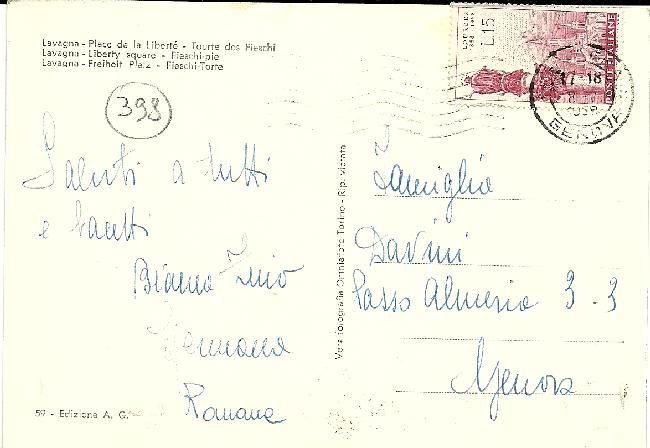 Lavagna - Place de la Liberté - Tourte des Fieschi
Lavagna - Liberty square - Fieschi-pie
Lavagna - Freiheit Platz - Fieschi-Torte
398
L.15
POSTE ITALIANE
17-18
GENOVA
Saluti a tutti
e bacetti
Famiglia
Davini
Passo Almeria 3-3
Genova
Vera fotografia Omniafoto Torino - Rip. vietata
59 - Edizione A. G.